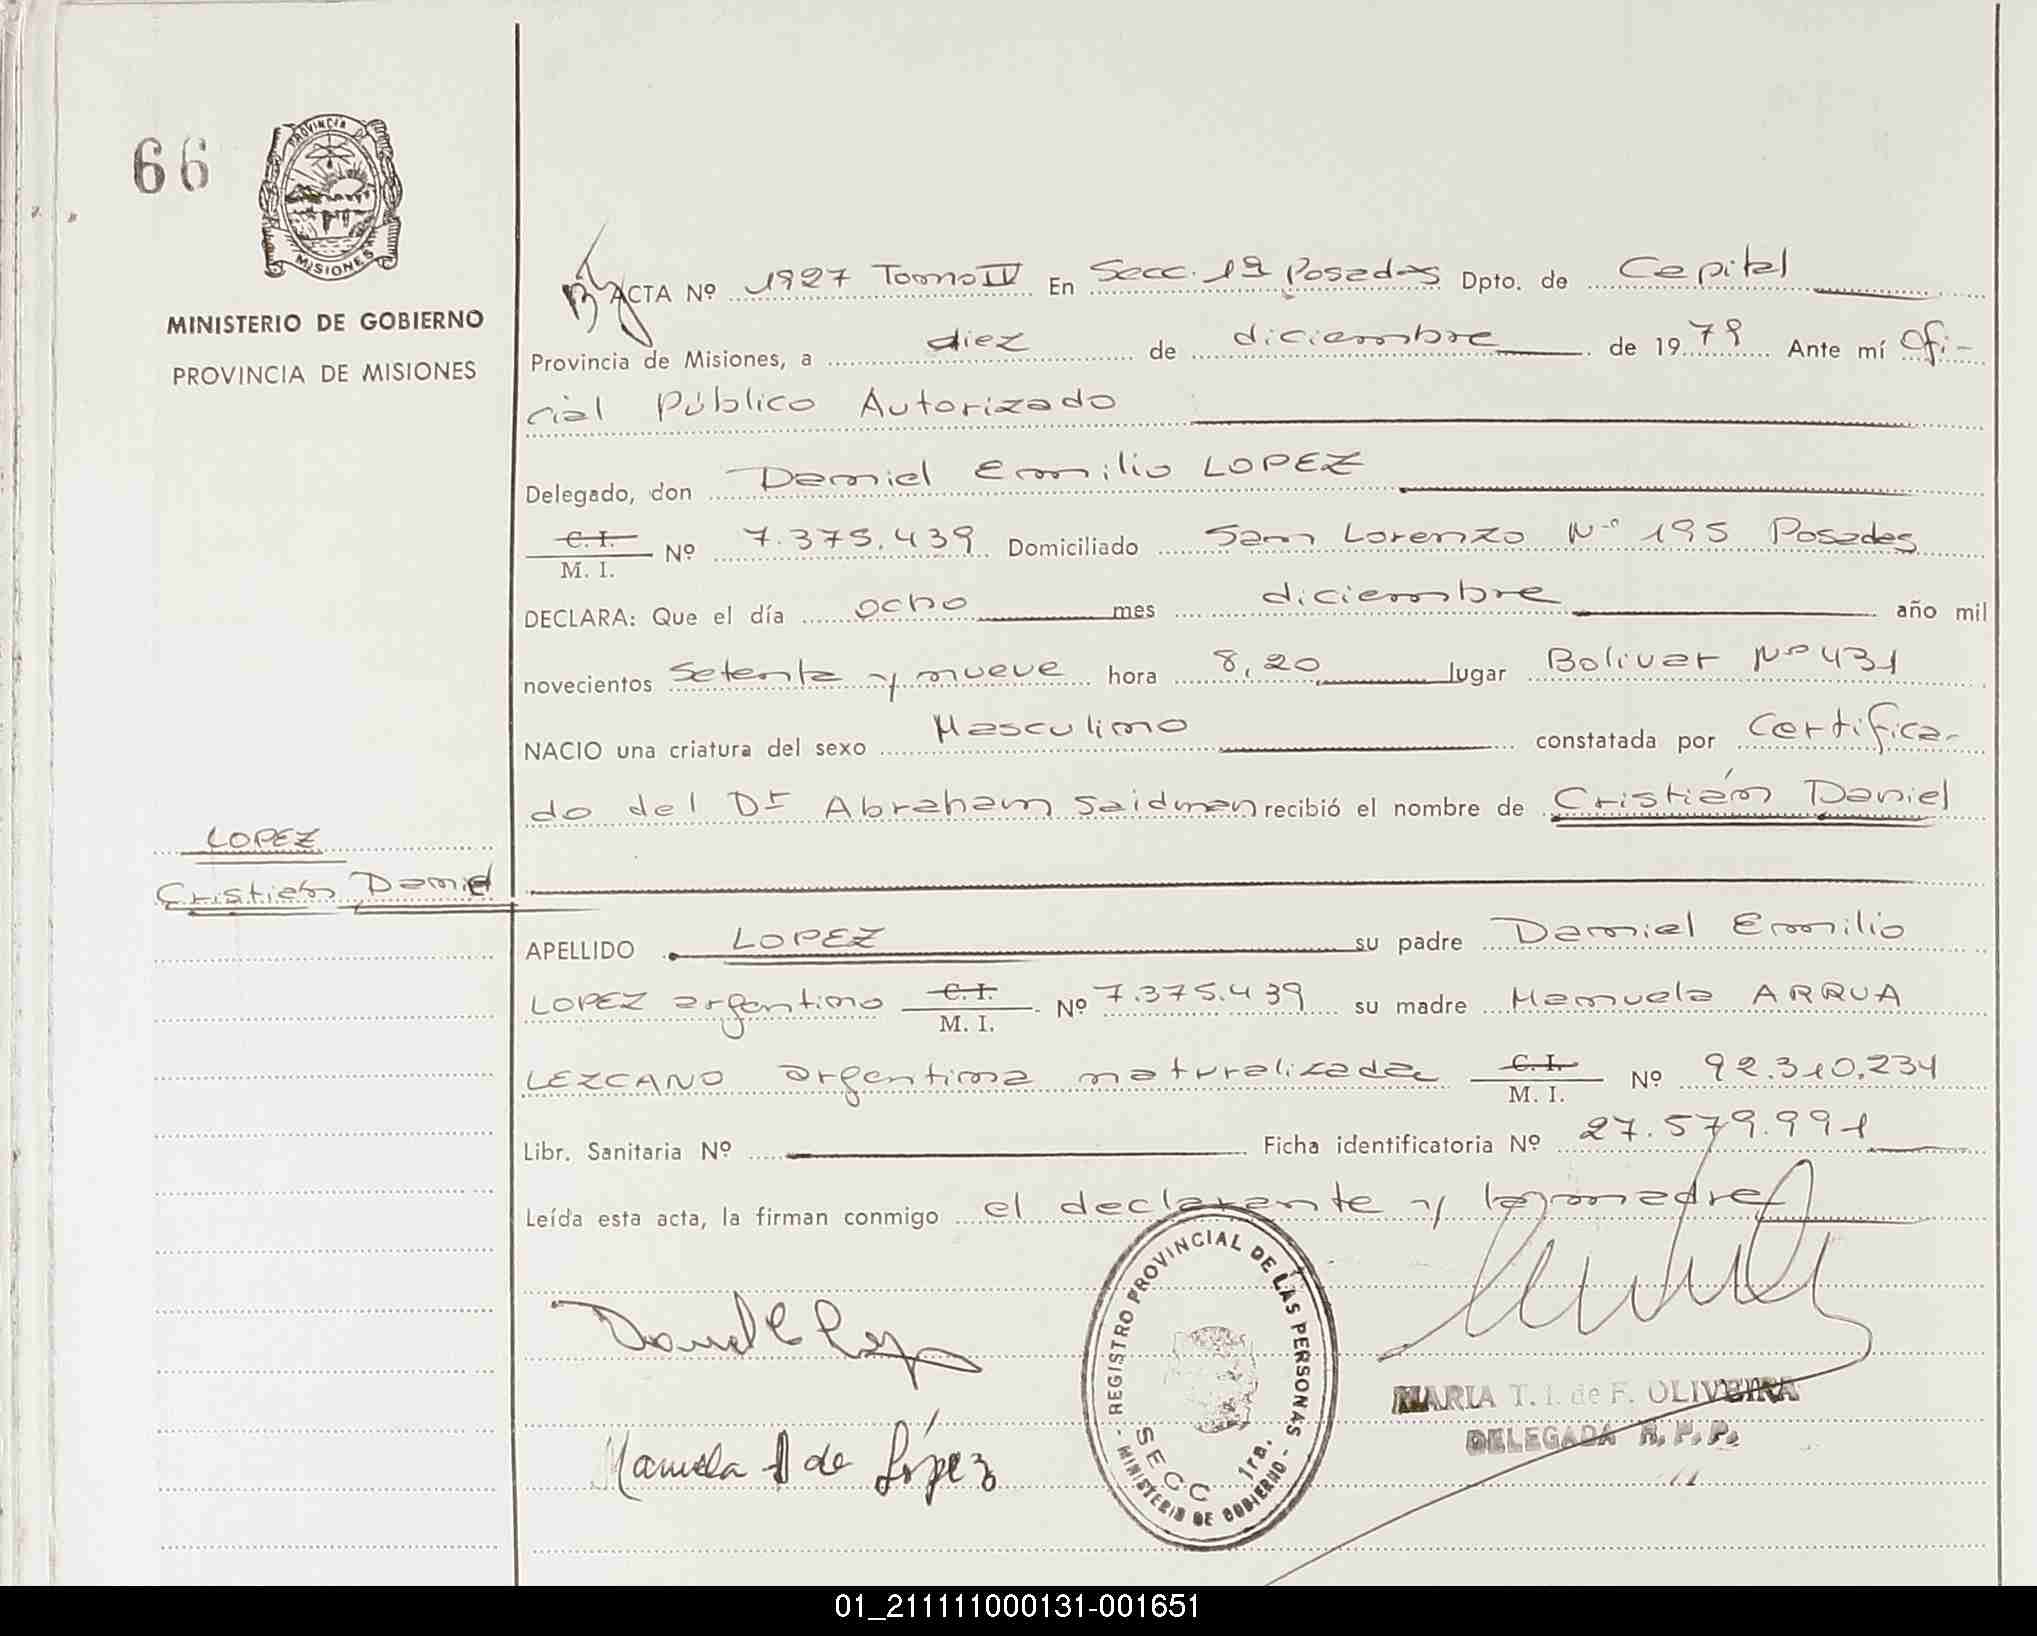 66
PROVINCIA DE
MISIONES
MINISTERIO DE GOBIERNO
PROVINCIA DE MISIONES
ACTA Nº 1927 Tomo IV En Secc. 1ª Posadas Dpto. de Capital
Provincia de Misiones, a diez de diciembre de 1979 Ante mí Ofi-
cial Público Autorizado
Delegado, don Daniel Emilio LOPEZ
C.I.
M. I. Nº 7.375.439 Domiciliado San Lorenzo Nº 195 Posadas
DECLARA: Que el día ocho mes diciembre año mil
novecientos setenta y nueve hora 8,20 lugar Bolivar Nº 431
NACIO una criatura del sexo Masculino constatada por Certifica-
do del Dr Abraham Saidman recibió el nombre de Cristián Daniel
LOPEZ
Cristián Daniel
APELLIDO LOPEZ su padre Daniel Emilio
LOPEZ argentino C.I. M. I. Nº 7.375.439 su madre Manuela ARRUA
LEZCANO argentina naturalizada C.I. M. I. Nº 92.310.234
Libr. Sanitaria Nº Ficha identificatoria Nº 27.579.991
Leída esta acta, la firman conmigo el declarante y la madre
Daniel E Lopez
Manuela A de López
REGISTRO PROVINCIAL DE LAS PERSONAS
SECC 1ra.
- MINISTERIO DE GOBIERNO -
MARIA T. I. de F. OLIVEIRA
DELEGADA R. P. P.
01_211111000131-001651